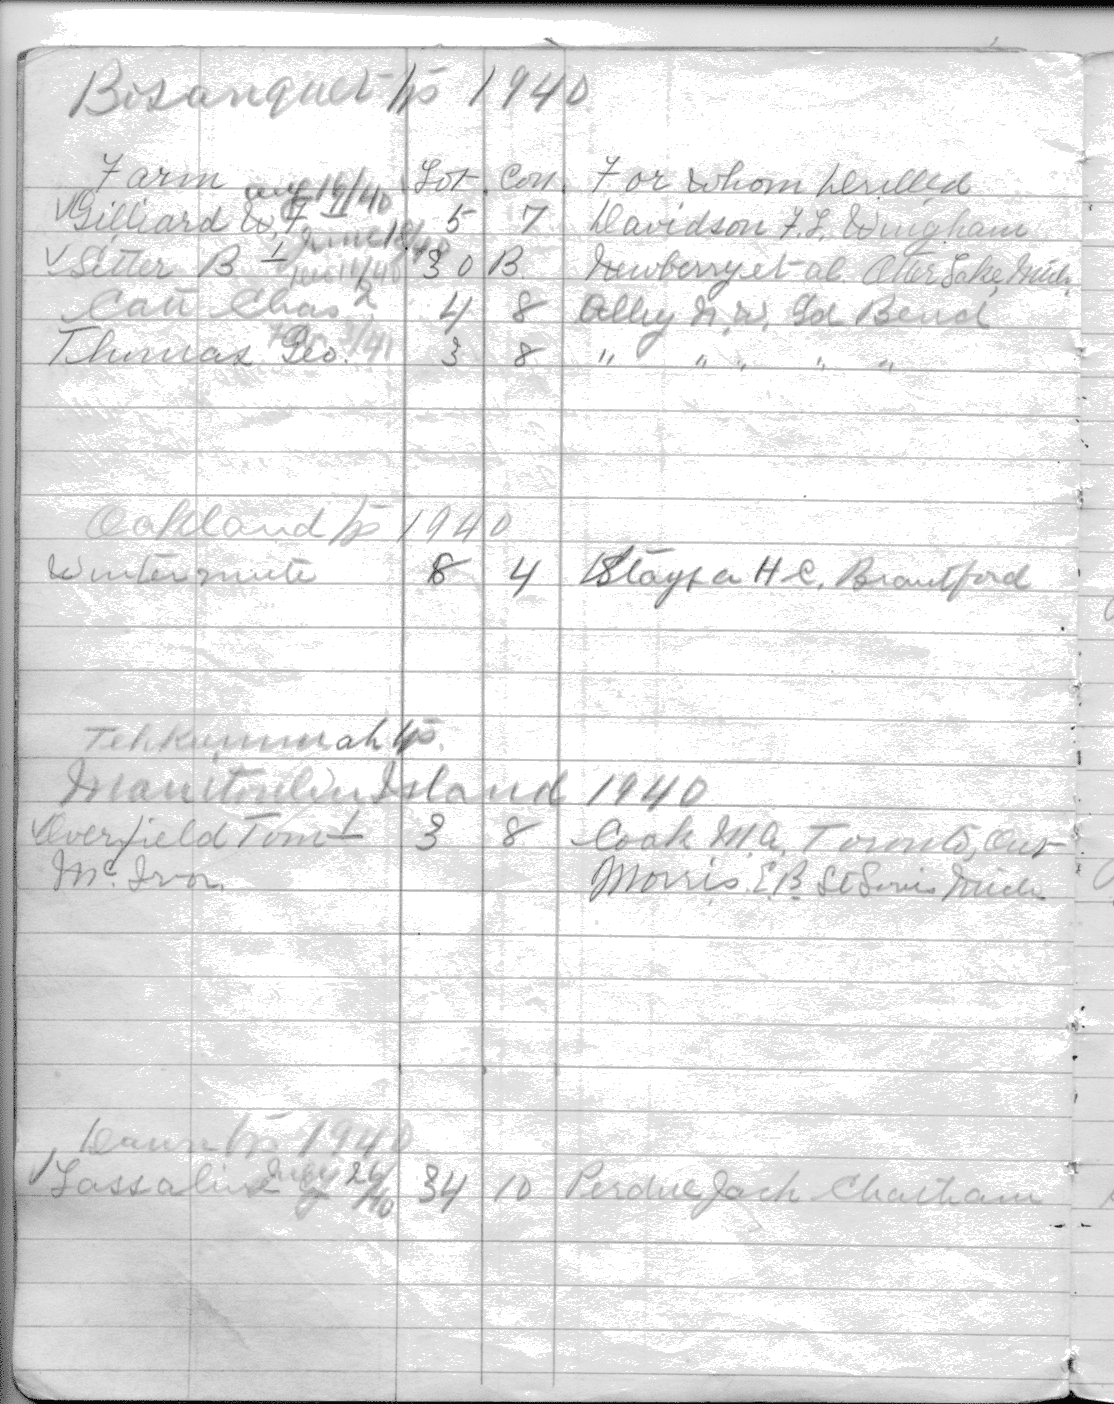 Bosanquet Tp 1940
Farm Lot Con. For Whom Drilled
Aug 16/40
√ Gilliard W. F 1 5 7 Davidson F. L. Wingham
June 18/40
√ Sitter B 1 30 B. Newberry et al. Otter Lake, Mich.
Jan 11/40
Catt Chas 2 4 8 Alley N. W. Gd Bend
/41
Thomas Geo. 3 8 " " " " "
Oakland Tp 1940
Wintermute 8 4 H. C. Brantford
Tehkummah Tp.
Manitoulin Island 1940
√ Overfield Tom 1 3 8 Cook M. A. Toronto, Ont
Mc. Morris. E. B. St Louis Mich
Dawn Tp 1940
√ Lassaline July 26/40 34 10 Perdue Jack Chatham